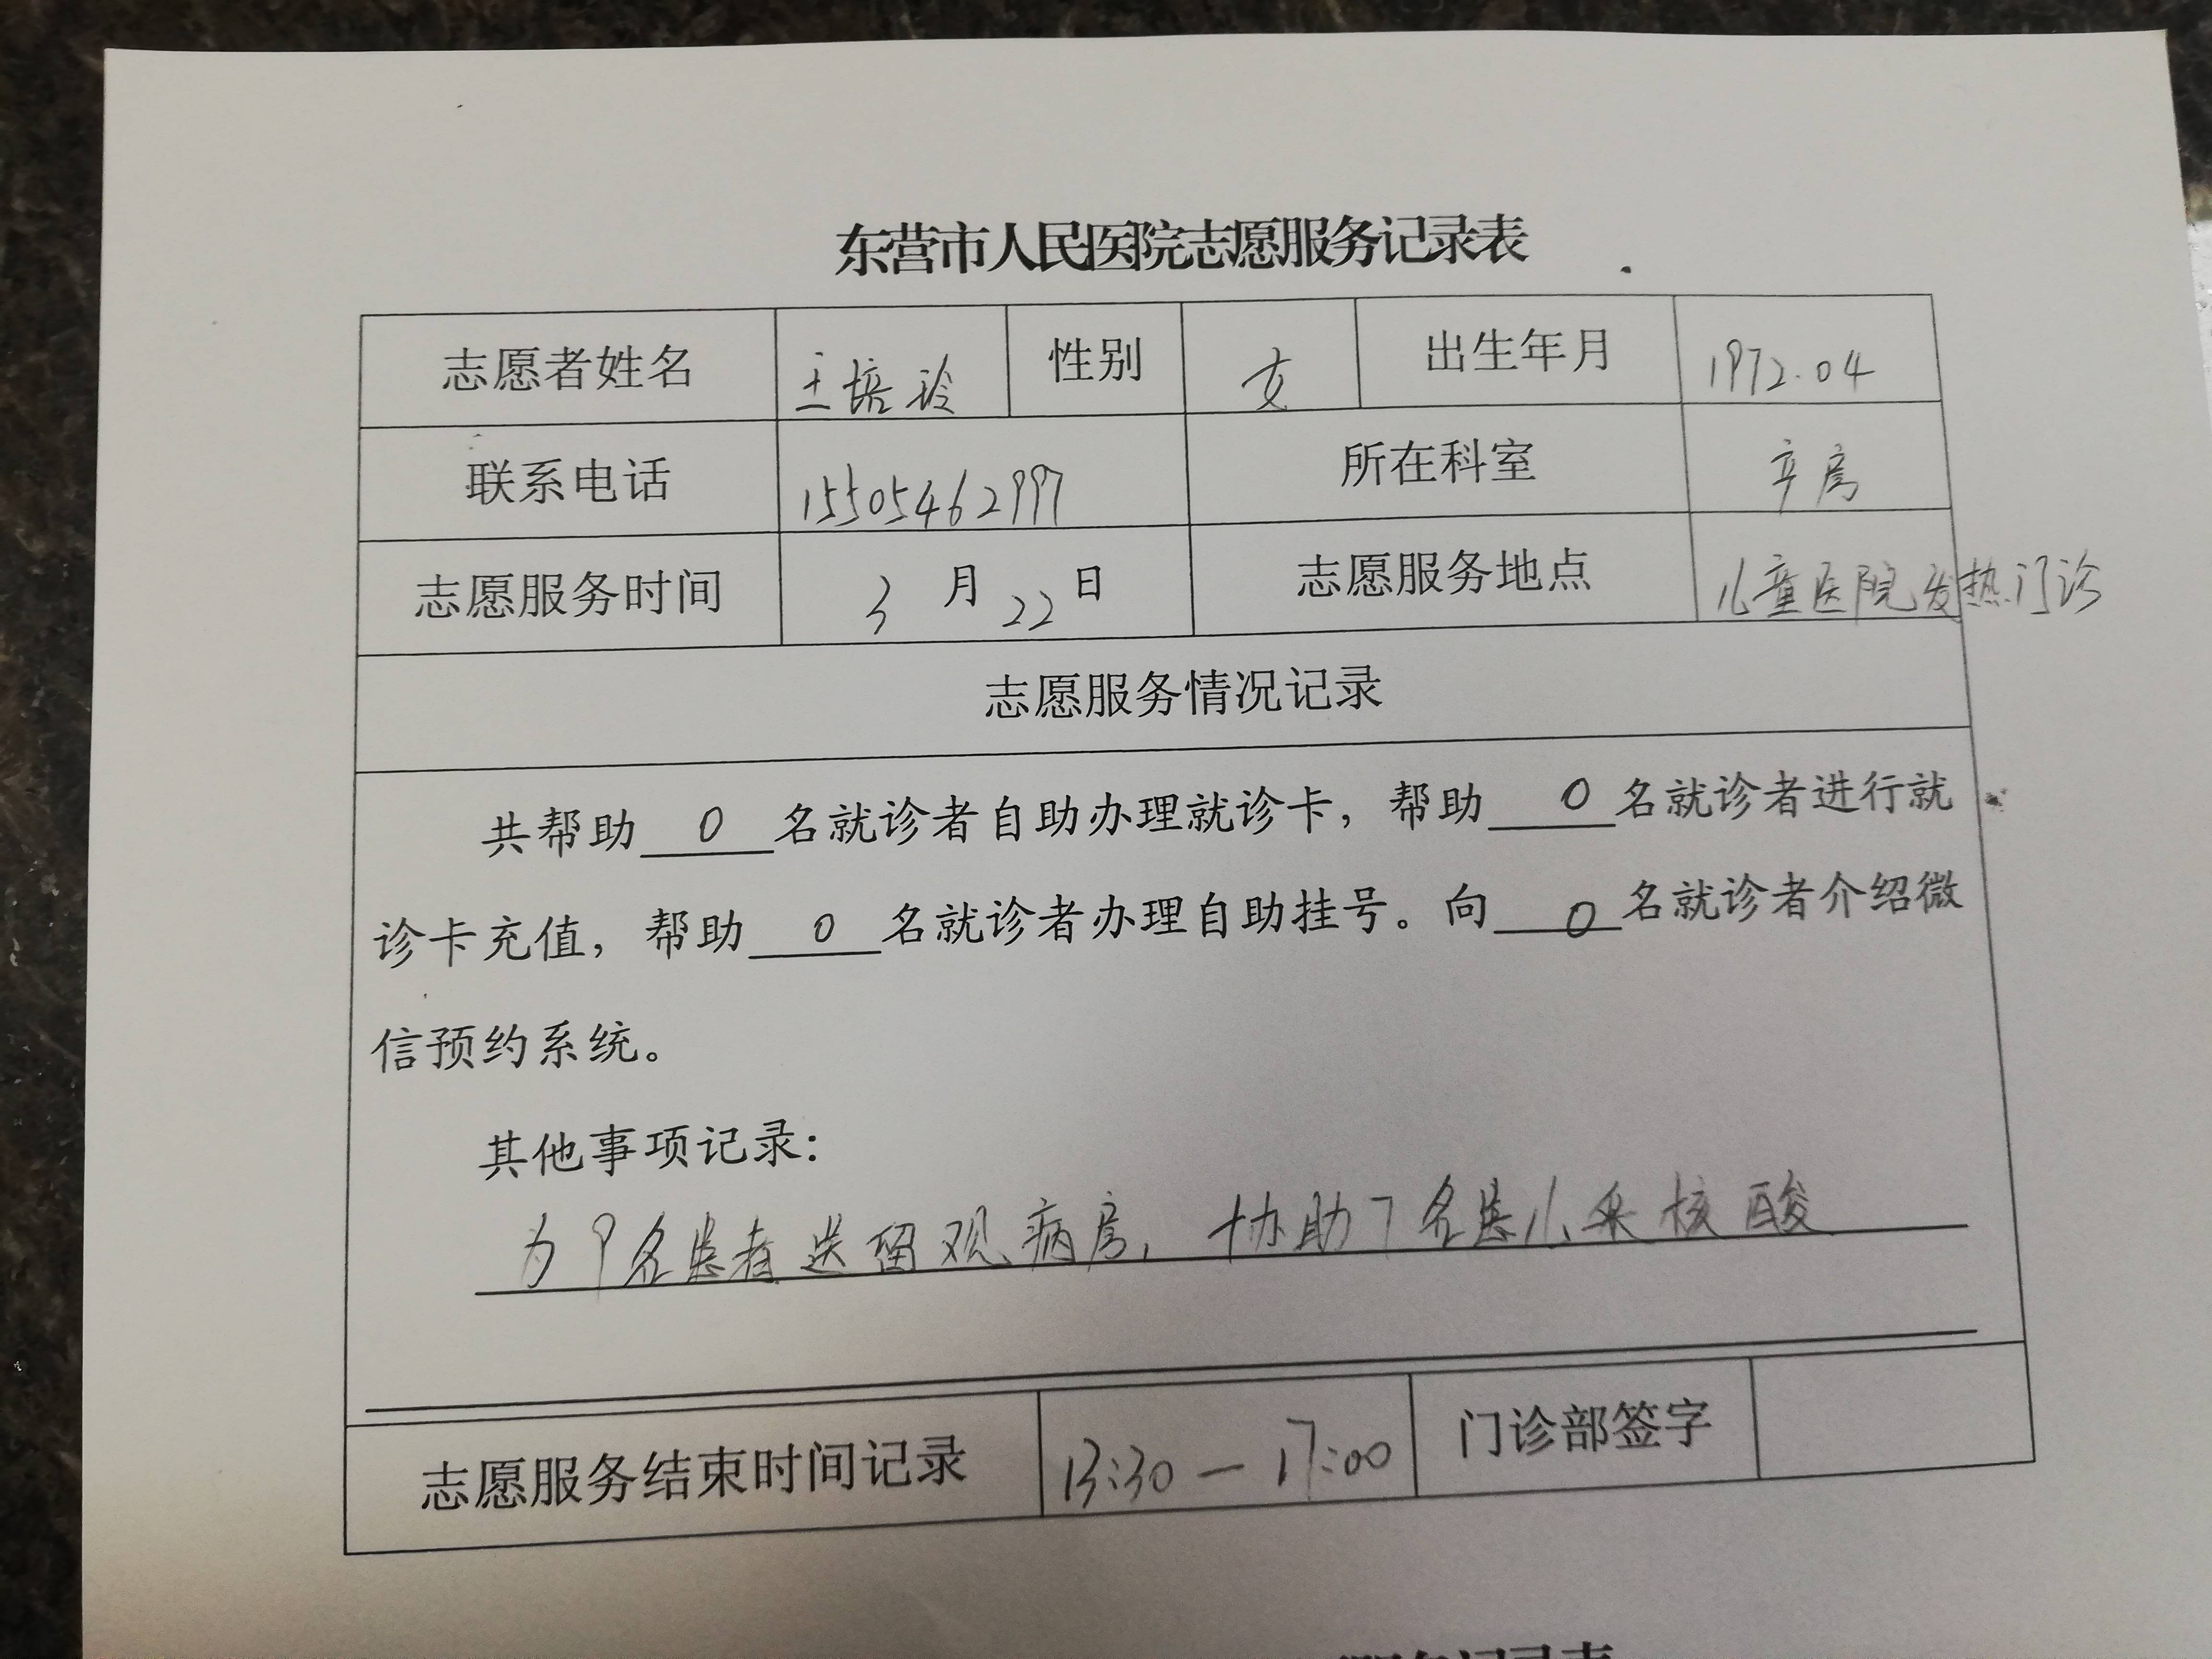 东营市人民医院志愿服务记录表
志愿者姓名 王培玲 性别 女 出生年月 1972.04
联系电话 15505462997 所在科室 产房
志愿服务时间 3月22日 志愿服务地点 儿童医院发热门诊
志愿服务情况记录
共帮助 0 名就诊者自助办理就诊卡，帮助 0 名就诊者进行就
诊卡充值，帮助 0 名就诊者办理自助挂号。向 0 名就诊者介绍微
信预约系统。
其他事项记录：
为9名患者送留观病房，协助7名患儿采核酸
志愿服务结束时间记录 13:30—17:00 门诊部签字
服务记录表